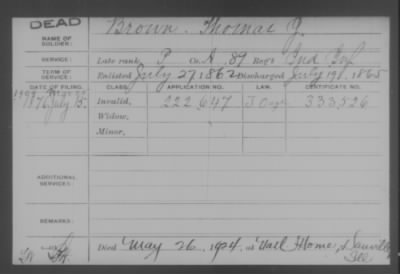 DEAD
NAME OF SOLDIER: Brown, Thomas J.
SERVICE: Late rank P Co. A, 89 Reg't Ind Inf
TERM OF SERVICE: Enlisted July 27 1862 Discharged July 19, 1865
DATE OF FILING. CLASS. APPLICATION NO. LAW. CERTIFICATE NO.
1876 July 15. Invalid, 222.647 333526
Widow,
Minor,
ADDITIONAL SERVICES:
REMARKS:
Died May 26, 1924, at Natl Home, Danville Ill